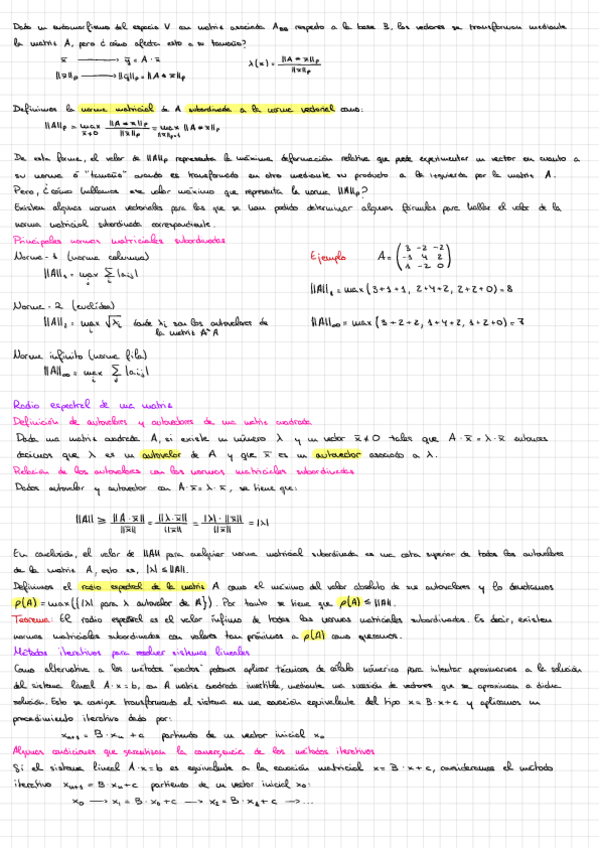 Dado un endomorfismo del espacio V con matriz asociada A_BB respecto a la base B, los vectores se transforman mediante
la matriz A, pero ¿cómo afecta esto a su tamaño?
x̄ ⟶ ȳ = A · x̄
||x̄||p ⟶ ||ȳ||p = ||A * x̄||p
λ(x) = ||A * x̄||p / ||x̄||p
Definimos la norma matricial de A subordinada a la norma vectorial como:
||A||p = max x̄≠0 ||A * x̄||p / ||x̄||p = max ||x̄||p=1 ||A * x̄||p
De esta forma, el valor de ||A||p representa la máxima deformación relativa que puede experimentar un vector en cuanto a
su norma ó "tamaño" cuando es transformado en otro mediante su producto a la izquierda por la matriz A.
Pero, ¿cómo hallamos ese valor máximo que representa la norma ||A||p?
Existen algunas normas vectoriales para las que se han podido determinar algunas fórmulas para hallar el valor de la
norma matricial subordinada correspondiente.
Principales normas matriciales subordinadas
Norma-1 (norma columna)
||A||₁ = max j Σ i |aij|
Ejemplo A = ( 3 -2 -2
-1 4 2
1 -2 0 )
||A||₁ = max (3+1+1, 2+4+2, 2+2+0) = 8
Norma-2 (euclídea)
||A||₂ = max i √λi donde λi son los autovalores de
la matriz Aᵗ·A
||A||∞ = max (3+2+2, 1+4+2, 1+2+0) = 7
Norma infinito (norma fila)
||A||∞ = max i Σ j |aij|
Radio espectral de una matriz
Definición de autovalores y autovectores de una matriz cuadrada
Dada una matriz cuadrada A, si existe un número λ y un vector x̄ ≠ 0 tales que A · x̄ = λ · x̄ entonces
decimos que λ es un autovalor de A y que x̄ es un autovector asociado a λ.
Relación de los autovalores con las normas matriciales subordinadas
Dados autovalor y autovector con A · x̄ = λ · x̄, se tiene que:
||A|| ≥ ||A · x̄|| / ||x̄|| = ||λ · x̄|| / ||x̄|| = |λ| · ||x̄|| / ||x̄|| = |λ|
En conclusión, el valor de ||A|| para cualquier norma matricial subordinada es una cota superior de todos los autovalores
de la matriz A, esto es, |λ| ≤ ||A||.
Definimos el radio espectral de la matriz A como el máximo del valor absoluto de sus autovalores y lo denotamos
ρ(A) = max({|λ| para λ autovalor de A}). Por tanto se tiene que ρ(A) ≤ ||A||.
Teorema: El radio espectral es el valor ínfimo de todas las normas matriciales subordinadas. Es decir, existen
normas matriciales subordinadas con valores tan próximos a ρ(A) como queramos.
Métodos iterativos para resolver sistemas lineales
Como alternativa a los métodos "exactos" podemos aplicar técnicas de cálculo numérico para intentar aproximarnos a la solución
del sistema lineal A · x = b, con A matriz cuadrada invertible, mediante una sucesión de vectores que se aproximan a dicha
solución. Esto se consigue transformando el sistema en una ecuación equivalente del tipo x = B · x + c y aplicamos un
procedimiento iterativo dado por:
xₙ₊₁ = B · xₙ + c partiendo de un vector inicial x₀
Algunas condiciones que garantizan la convergencia de los métodos iterativos
Si el sistema lineal A · x = b es equivalente a la ecuación matricial x = B · x + c, consideramos el método
iterativo xₙ₊₁ = B · xₙ + c partiendo de un vector inicial x₀:
x₀ ⟶ x₁ = B · x₀ + c ⟶ x₂ = B · x₁ + c ⟶ ...